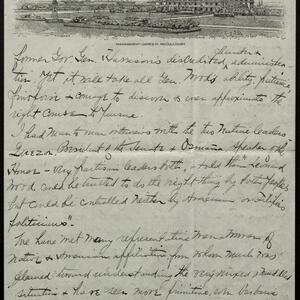 former Gov. Gen. Harrison's discredited, administra
tion. Yet it will take all Gen. Wood's ability, patience,
& courage to discover & even approximate the
right course to pursue.
I had man to man interviews with the two Native leaders
Quezon, President of the Senate & Osmena, Speaker of the
House — very partisan leaders both, & told them Leonard
Wood could be trusted to do the right thing by both peoples
but could be controlled neither by American or Filipino
politicians".
We have met many representative men & women of
Native & American from whom much was
gleaned toward understanding the very
situation & have seen more primitive, even barbaric